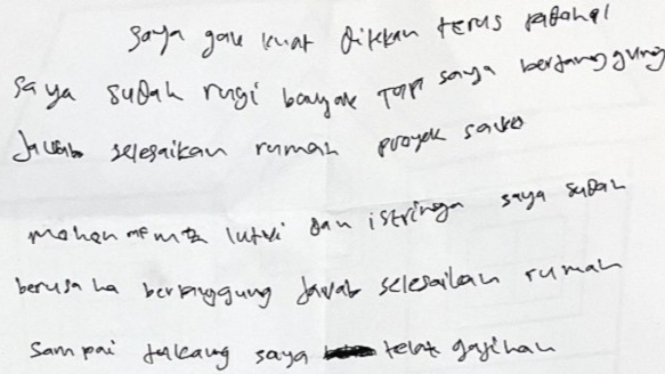 saya gak kuat ditekan terus padahal
saya sudah rugi banyak Tapi saya bertanggung
Jawab selesaikan rumah proyek
mohon lutvi dan istrinya saya sudah
berusaha bertanggung jawab selesaikan rumah
Sampai tukang saya telat gajihan